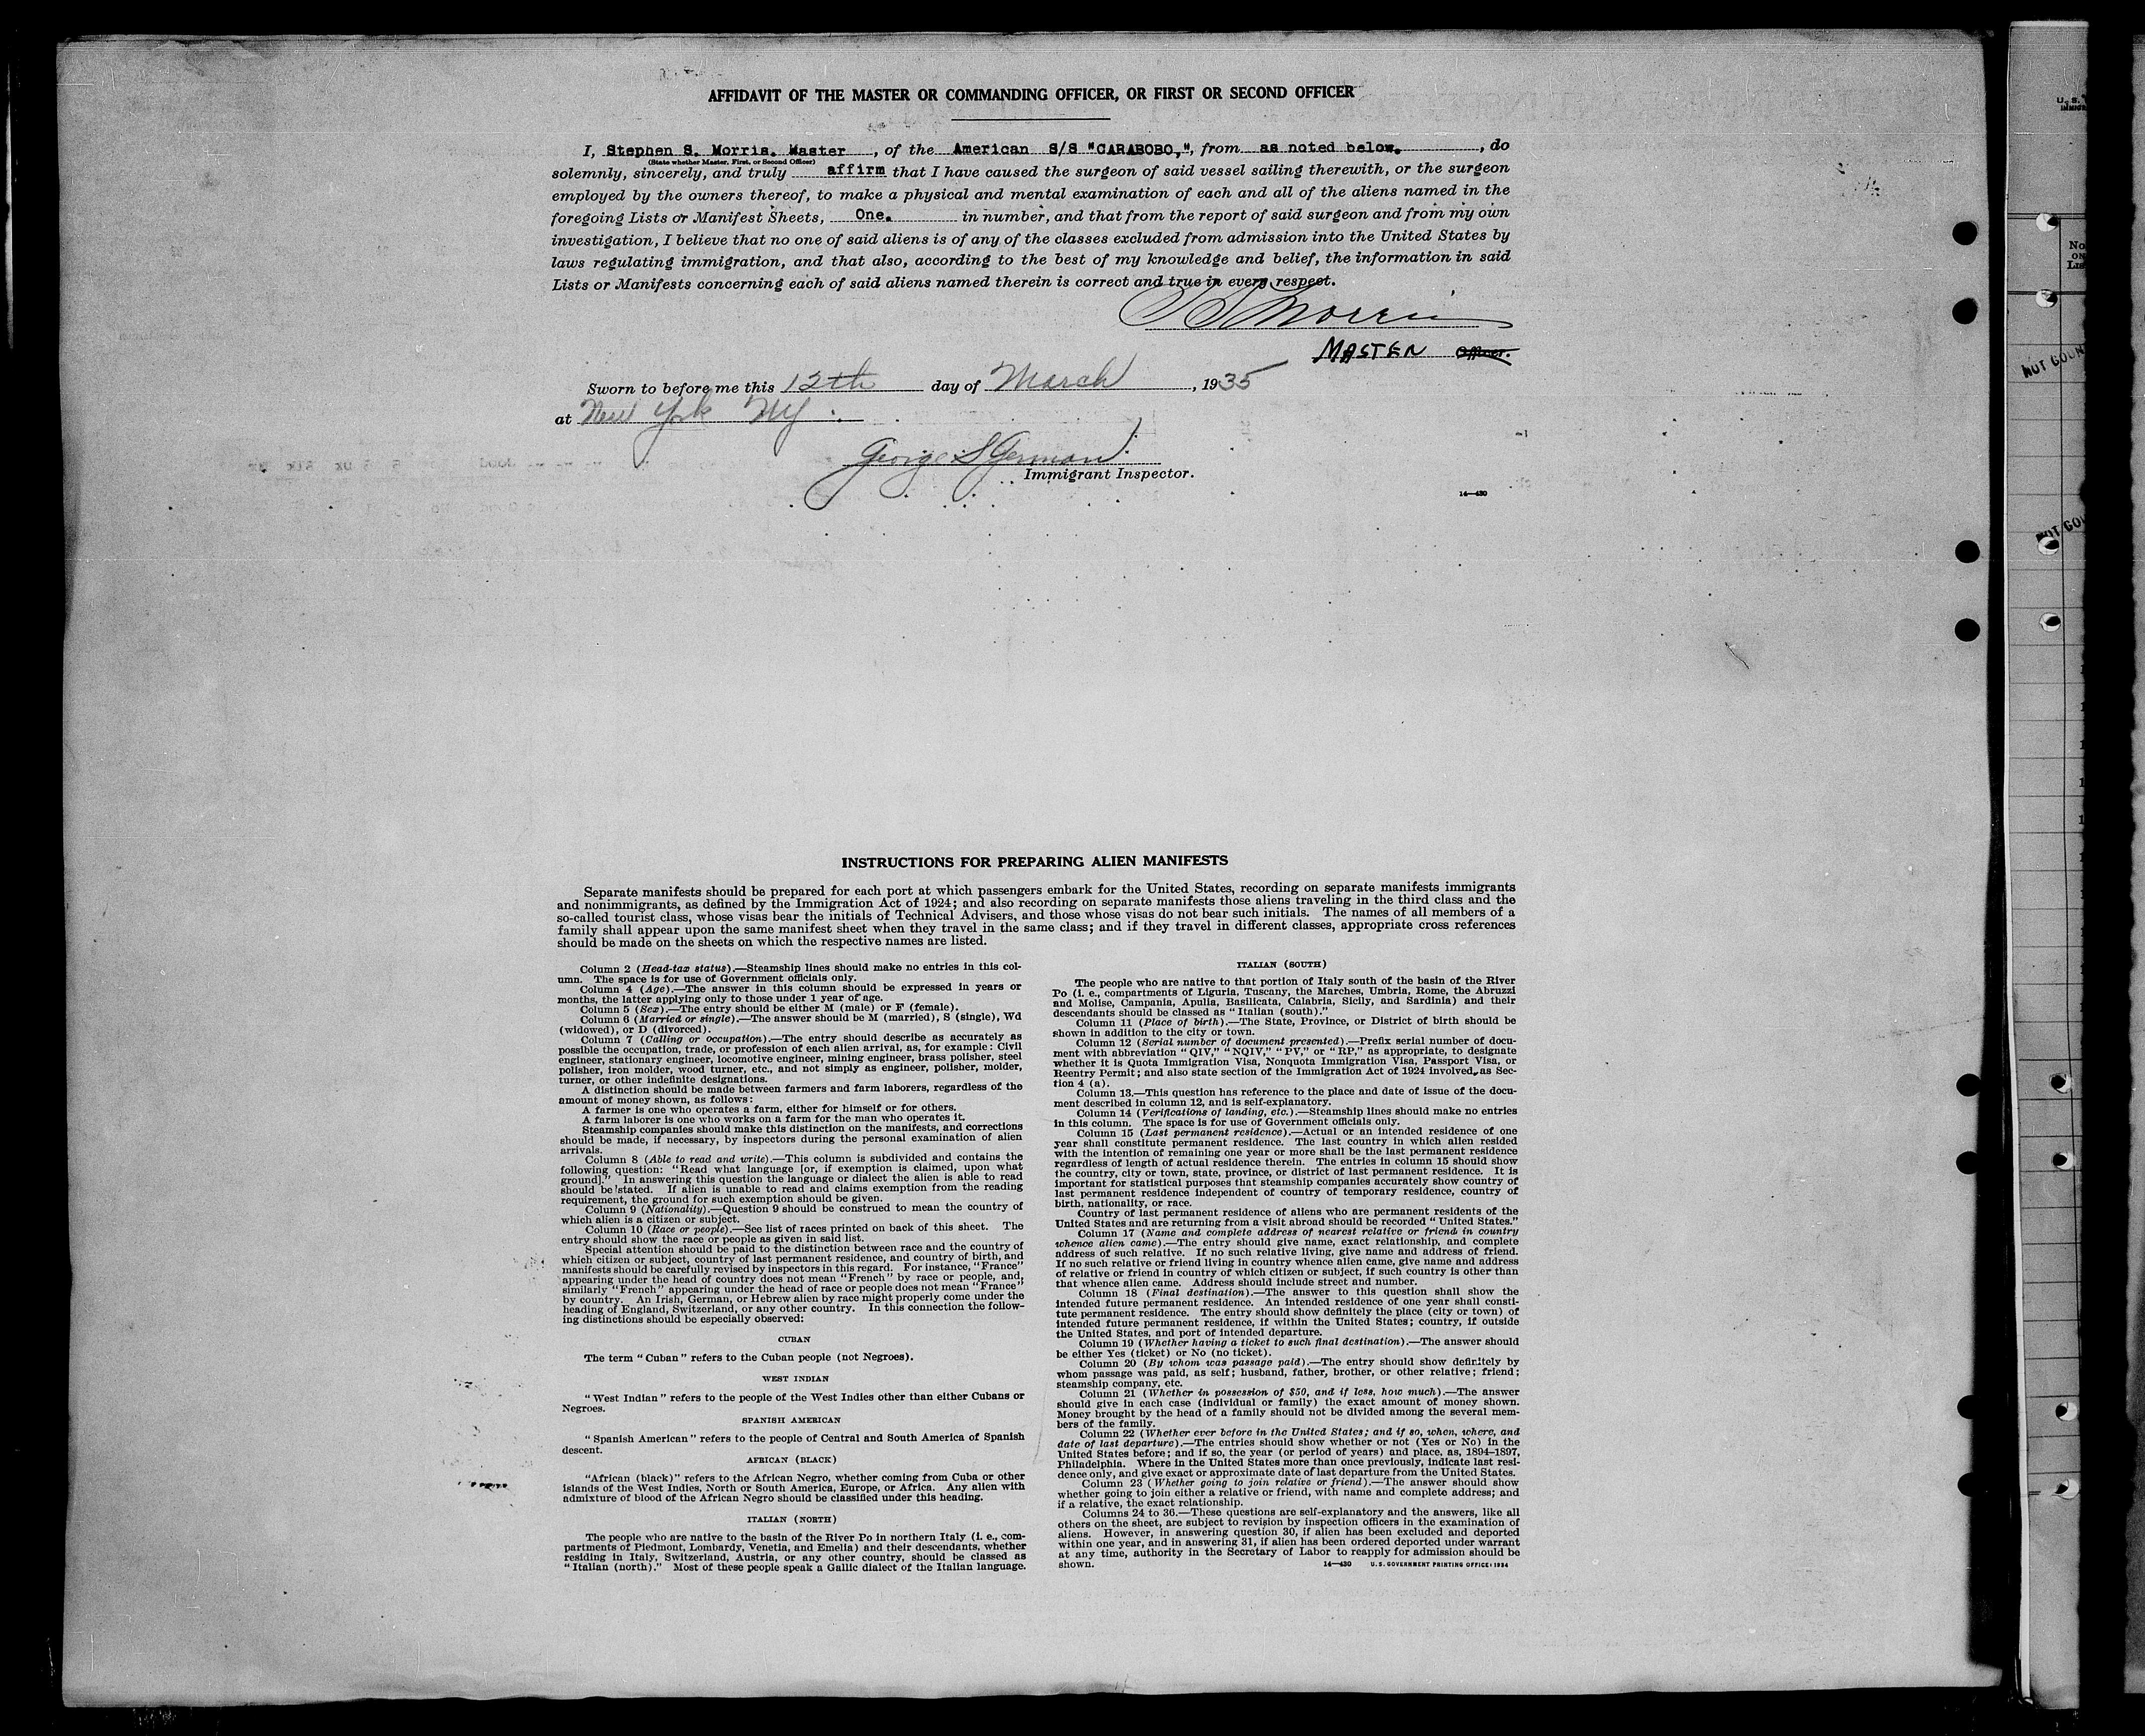 AFFIDAVIT OF THE MASTER OR COMMANDING OFFICER, OR FIRST OR SECOND OFFICER
I, Stephen S. Morris. Master, of the American S/S "CARABOBO,", from as noted below., do
(State whether Master, First, or Second Officer)
solemnly, sincerely, and truly affirm that I have caused the surgeon of said vessel sailing therewith, or the surgeon
employed by the owners thereof, to make a physical and mental examination of each and all of the aliens named in the
foregoing Lists or Manifest Sheets, One. in number, and that from the report of said surgeon and from my own
investigation, I believe that no one of said aliens is of any of the classes excluded from admission into the United States by
laws regulating immigration, and that also, according to the best of my knowledge and belief, the information in said
Lists or Manifests concerning each of said aliens named therein is correct and true in every respect.
S S Morris
MASTER Officer.
Sworn to before me this 12th day of March, 1935
at New York NY.
George S German
Immigrant Inspector.
14—430
INSTRUCTIONS FOR PREPARING ALIEN MANIFESTS
Separate manifests should be prepared for each port at which passengers embark for the United States, recording on separate manifests immigrants
and nonimmigrants, as defined by the Immigration Act of 1924; and also recording on separate manifests those aliens traveling in the third class and the
so-called tourist class, whose visas bear the initials of Technical Advisers, and those whose visas do not bear such initials. The names of all members of a
family shall appear upon the same manifest sheet when they travel in the same class; and if they travel in different classes, appropriate cross references
should be made on the sheets on which the respective names are listed.
Column 2 (Head-tax status).—Steamship lines should make no entries in this col-
umn. The space is for use of Government officials only.
Column 4 (Age).—The answer in this column should be expressed in years or
months, the latter applying only to those under 1 year of age.
Column 5 (Sex).—The entry should be either M (male) or F (female).
Column 6 (Married or single).—The answer should be M (married), S (single), Wd
(widowed), or D (divorced).
Column 7 (Calling or occupation).—The entry should describe as accurately as
possible the occupation, trade, or profession of each alien arrival, as, for example: Civil
engineer, stationary engineer, locomotive engineer, mining engineer, brass polisher, steel
polisher, iron molder, wood turner, etc., and not simply as engineer, polisher, molder,
turner, or other indefinite designations.
A distinction should be made between farmers and farm laborers, regardless of the
amount of money shown, as follows:
A farmer is one who operates a farm, either for himself or for others.
A farm laborer is one who works on a farm for the man who operates it.
Steamship companies should make this distinction on the manifests, and corrections
should be made, if necessary, by inspectors during the personal examination of alien
arrivals.
Column 8 (Able to read and write).—This column is subdivided and contains the
following question: "Read what language [or, if exemption is claimed, upon what
ground]." In answering this question the language or dialect the alien is able to read
should be stated. If alien is unable to read and claims exemption from the reading
requirement, the ground for such exemption should be given.
Column 9 (Nationality).—Question 9 should be construed to mean the country of
which alien is a citizen or subject.
Column 10 (Race or people).—See list of races printed on back of this sheet. The
entry should show the race or people as given in said list.
Special attention should be paid to the distinction between race and the country of
which citizen or subject, country of last permanent residence, and country of birth, and
manifests should be carefully revised by inspectors in this regard. For instance, "France"
appearing under the head of country does not mean "French" by race or people, and,
similarly "French" appearing under the head of race or people does not mean "France"
by country. An Irish, German, or Hebrew alien by race might properly come under the
heading of England, Switzerland, or any other country. In this connection the follow-
ing distinctions should be especially observed:
CUBAN
The term "Cuban" refers to the Cuban people (not Negroes).
WEST INDIAN
"West Indian" refers to the people of the West Indies other than either Cubans or
Negroes.
SPANISH AMERICAN
"Spanish American" refers to the people of Central and South America of Spanish
descent.
AFRICAN (BLACK)
"African (black)" refers to the African Negro, whether coming from Cuba or other
islands of the West Indies, North or South America, Europe, or Africa. Any alien with
admixture of blood of the African Negro should be classified under this heading.
ITALIAN (NORTH)
The people who are native to the basin of the River Po in northern Italy (i. e., com-
partments of Piedmont, Lombardy, Venetia, and Emelia) and their descendants, whether
residing in Italy, Switzerland, Austria, or any other country, should be classed as
"Italian (north)." Most of these people speak a Gallic dialect of the Italian language.
ITALIAN (SOUTH)
The people who are native to that portion of Italy south of the basin of the River
Po (i. e., compartments of Liguria, Tuscany, the Marches, Umbria, Rome, the Abruzzi
and Molise, Campania, Apulia, Basilicata, Calabria, Sicily, and Sardinia) and their
descendants should be classed as "Italian (south)."
Column 11 (Place of birth).—The State, Province, or District of birth should be
shown in addition to the city or town.
Column 12 (Serial number of document presented).—Prefix serial number of docu-
ment with abbreviation "QIV," "NQIV," "PV," or "RP," as appropriate, to designate
whether it is Quota Immigration Visa, Nonquota Immigration Visa, Passport Visa, or
Reentry Permit; and also state section of the Immigration Act of 1924 involved, as Sec-
tion 4 (a).
Column 13.—This question has reference to the place and date of issue of the docu-
ment described in column 12, and is self-explanatory.
Column 14 (Verifications of landing, etc.).—Steamship lines should make no entries
in this column. The space is for use of Government officials only.
Column 15 (Last permanent residence).—Actual or an intended residence of one
year shall constitute permanent residence. The last country in which alien resided
with the intention of remaining one year or more shall be the last permanent residence
regardless of length of actual residence therein. The entries in column 15 should show
the country, city or town, state, province, or district of last permanent residence. It is
important for statistical purposes that steamship companies accurately show country of
last permanent residence independent of country of temporary residence, country of
birth, nationality, or race.
Country of last permanent residence of aliens who are permanent residents of the
United States and are returning from a visit abroad should be recorded "United States."
Column 17 (Name and complete address of nearest relative or friend in country
whence alien came).—The entry should give name, exact relationship, and complete
address of such relative. If no such relative living, give name and address of friend.
If no such relative or friend living in country whence alien came, give name and address
of relative or friend in country of which citizen or subject, if such country is other than
that whence alien came. Address should include street and number.
Column 18 (Final destination).—The answer to this question shall show the
intended future permanent residence. An intended residence of one year shall consti-
tute permanent residence. The entry should show definitely the place (city or town) of
intended future permanent residence, if within the United States; country, if outside
the United States, and port of intended departure.
Column 19 (Whether having a ticket to such final destination).—The answer should
be either Yes (ticket) or No (no ticket).
Column 20 (By whom was passage paid).—The entry should show definitely by
whom passage was paid, as self; husband, father, brother, or other relative; friend;
steamship company, etc.
Column 21 (Whether in possession of $50, and if less, how much).—The answer
should give in each case (individual or family) the exact amount of money shown.
Money brought by the head of a family should not be divided among the several mem-
bers of the family.
Column 22 (Whether ever before in the United States; and if so, when, where, and
date of last departure).—The entries should show whether or not (Yes or No) in the
United States before; and if so, the year (or period of years) and place, as, 1894–1897,
Philadelphia. Where in the United States more than once previously, indicate last resi-
dence only, and give exact or approximate date of last departure from the United States.
Column 23 (Whether going to join relative or friend).—The answer should show
whether going to join either a relative or friend, with name and complete address; and
if a relative, the exact relationship.
Columns 24 to 36.—These questions are self-explanatory and the answers, like all
others on the sheet, are subject to revision by inspection officers in the examination of
aliens. However, in answering question 30, if alien has been excluded and deported
within one year, and in answering 31, if alien has been ordered deported under warrant
at any time, authority in the Secretary of Labor to reapply for admission should be
shown.
14—430 U. S. GOVERNMENT PRINTING OFFICE: 1934
U. S.
No
ON
NOT
NOT